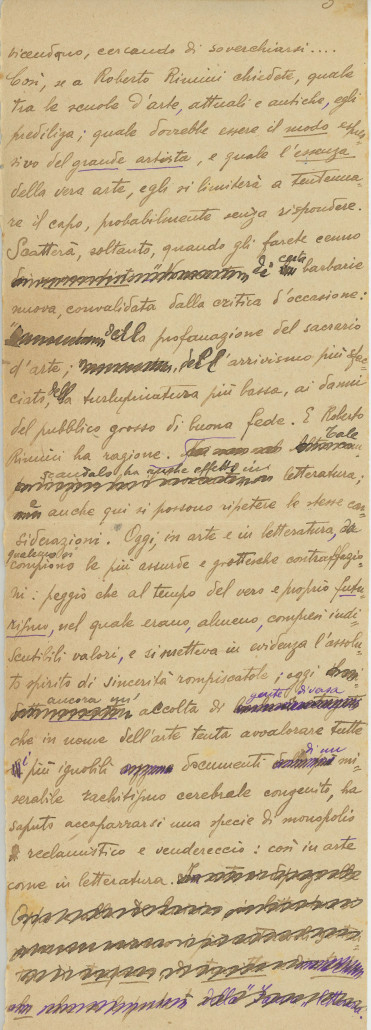 3
vicendano, cercando di soverchiarsi....
Così, se a Roberto Rimini chiedete, quale
tra le scuole d'arte, attuali e antiche, egli
prediliga; quale dovrebbe essere il modo espres-
sivo del grande artista, e quale l'essenza
della vera arte, egli si limiterà a tentenna-
re il capo, probabilmente senza rispondere.
Scatterà, soltanto, quando gli farete cenno
di certe barbarie
nuova, convalidata dalla critica d'occasione:
della profanazione del sacrario
d'arte; dell'arrivismo più sfac-
ciato, della turlupinatura più bassa, ai danni
del pubblico grosso di buona fede. E Roberto
Rimini ha ragione. Tale
scandalo ha anche effetto in letteratura;
anche qui si possono ripetere le stesse con-
siderazioni. Oggi, in arte e in letteratura, da
qualcuno si
compiono le più assurde e grottesche contraffazio-
ni: peggio che al tempo del vero e proprio futu-
rismo, nel quale erano, almeno, compresi indi-
scutibili valori, e si metteva in evidenza l'assolu-
to spirito di sincerità rompiscatole; oggi
accolta di
che in nome dell'arte tenta avvalorare tutte
i più ignobili documenti di un mi-
serabile rachitismo cerebrale congenito, ha
saputo accaparrarsi una specie di monopolio
reclamistico e vendereccio: così in arte
come in letteratura.
della letteratura.